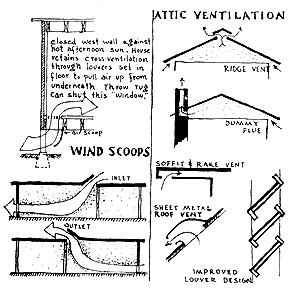 closed west wall against
hot afternoon sun. House
retains cross-ventilation
through louvers set in
floor to pull air up from
underneath. Throw rug
can shut this "window."
air scoop
WIND SCOOPS
INLET
OUTLET
ATTIC VENTILATION
RIDGE VENT
DUMMY
FLUE
SOFFIT & RAKE VENT
SHEET METAL
ROOF VENT
IMPROVED
LOUVER DESIGN